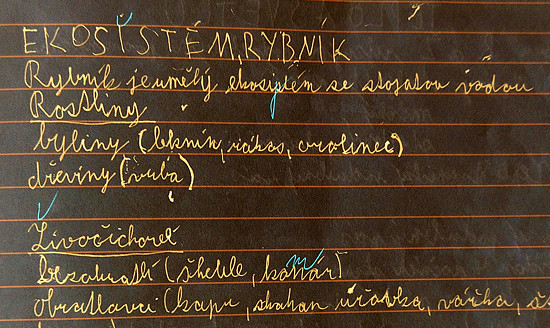 EKOSÍSTÉM RYBNÍK
Rybník je umělý ekosystém se stojatou vodou
Rostliny
byliny (leknín, rákos, orobinec)
dřeviny (vrba)
Živočichové
bezobratlí (škeble, komár)
obratlovci (kapr, skokan, užovka, vážka,